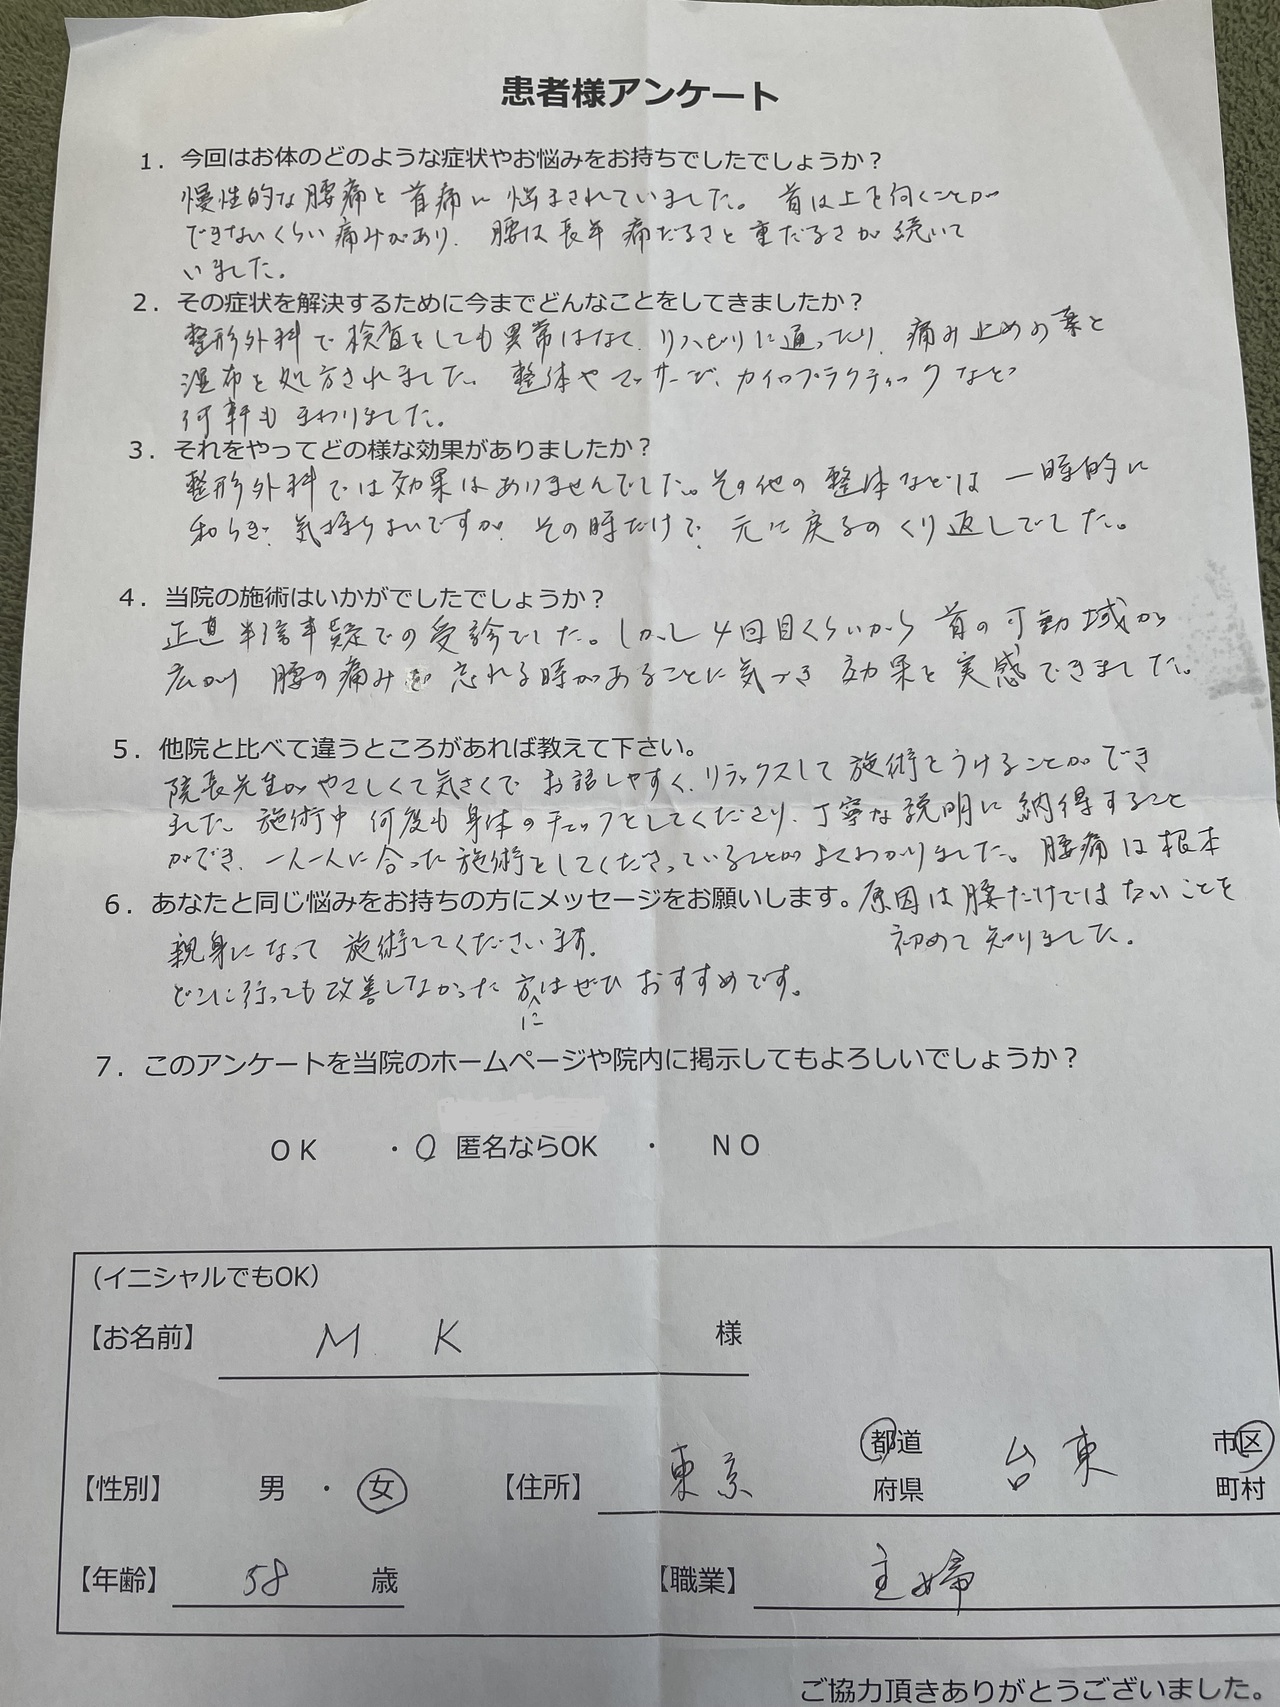 患者様アンケート
1．今回はお体のどのような症状やお悩みをお持ちでしたでしょうか？
慢性的な腰痛と首痛に悩まされていました。首は上を向くことが
できないくらい痛みがあり、腰は長年痛だるさと重だるさが続いて
いました。
2．その症状を解決するために今までどんなことをしてきましたか？
整形外科で検査をしても異常はなく、リハビリに通ったり、痛み止めの薬と
湿布を処方されました。整体やマッサージ、カイロプラクティックなど
何軒もまわりました。
3．それをやってどの様な効果がありましたか？
整形外科では効果はありませんでした。その他の整体などは一時的に
和らぎ、気持ちよいですが、その時だけで、元に戻るのくり返しでした。
4．当院の施術はいかがでしたでしょうか？
正直半信半疑での受診でした。しかし4回目くらいから首の可動域が
広がり腰の痛みを忘れる時があることに気づき効果を実感できました。
5．他院と比べて違うところがあれば教えて下さい。
院長先生がやさしくて気さくでお話しやすく、リラックスして施術をうけることができ
ました。施術中何度も身体のチェックをしてくださり、丁寧な説明に納得すること
ができ、一人一人に合った施術をしてくださっていることがよくわかりました。腰痛は根本
原因は腰だけではないことを
初めて知りました。
6．あなたと同じ悩みをお持ちの方にメッセージをお願いします。
親身になって施術してくださいます。
どこに行っても改善しなかった方にはぜひおすすめです。
7．このアンケートを当院のホームページや院内に掲示してもよろしいでしょうか？
OK ・○ 匿名ならOK ・ NO
（イニシャルでもOK）
【お名前】 M K 様
【性別】 男 ・ 女 【住所】 東京 都道府県 台東 市区町村
【年齢】 58 歳 【職業】 主婦
ご協力頂きありがとうございました。